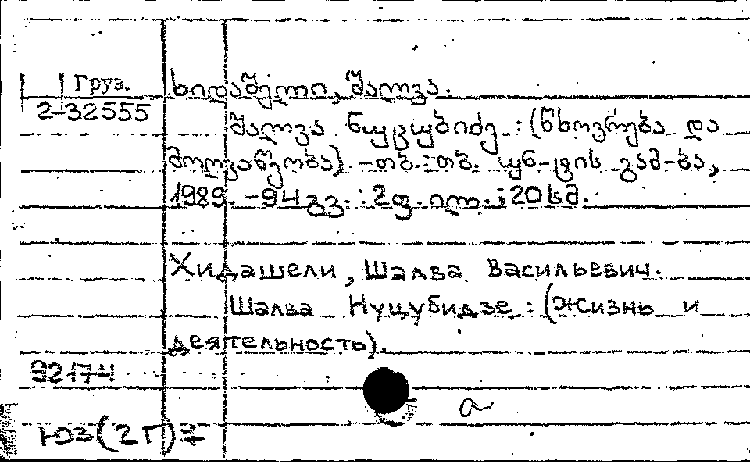 Груз.
2-32555
ხიდაშელი, შალვა.
შალვა ნუცუბიძე : (ცხოვრება და
მოღვაწეობა). -თბ.: თბ. უნ-ტის გამ-ბა,
1989. -94 გვ. : 2 ფ. ილ. ; 20 სმ.
Хидашели, Шалва Васильевич.
Шалва Нуцубидзе : (жизнь и
деятельность).
92174
ЮЗ(2Г)=
а